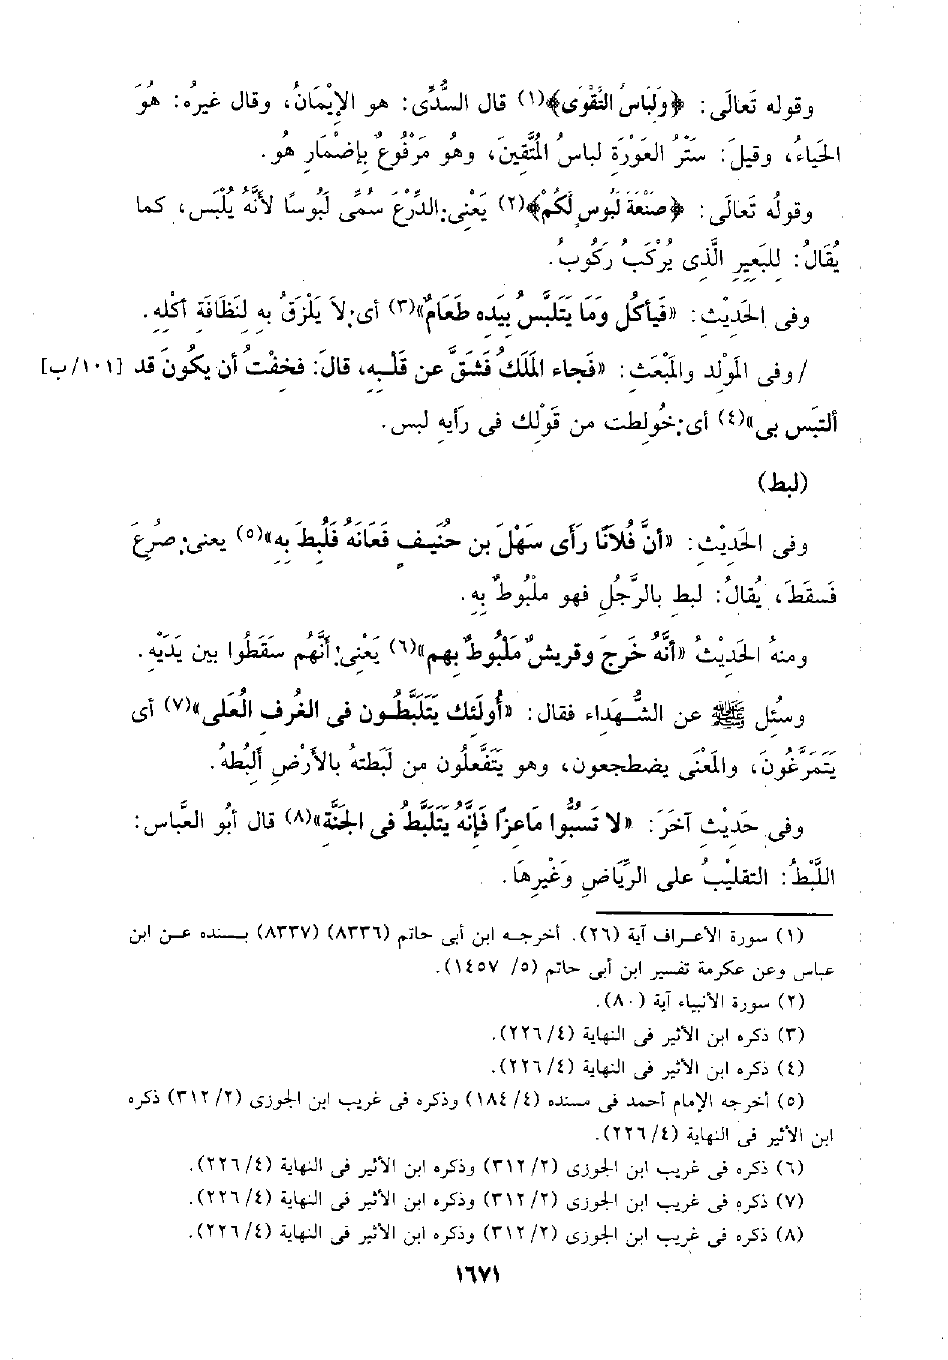 وقوله تَعالَى: ﴿وَلِبَاسُ التَّقْوَى﴾(١) قال السُّدِّى: هو الإِيْمَانُ، وقال غيرُه: هُوَ
الحَيَاءُ، وقيلَ: سَتْرُ العَوْرَةِ لباسُ المُتَّقِينَ، وهُو مَرْفُوعٌ بِإضْمَارِ هُو.
وقولُه تَعَالَى: ﴿صَنْعَةَ لَبُوسٍ لَكُمْ﴾(٢) يَعْنِى: الدِّرْعَ سُمِّى لَبُوسًا لأنَّهُ يُلْبَس، كما
يُقَالُ: لِلبَعِيرِ الَّذِى يُرْكَبُ رَكُوبُ.
وفى الحَدِيْثِ: «فَيَأكُل وَمَا يَتَلَبَّسُ بِيَدِه طَعَامٌ»(٣) أى: لاَ يَلْزَقُ بِهِ لنَظَافَةِ أكْلِهِ.
/ وفى المَوْلِد والمَبْعَثِ: «فَجاء المَلَكُ فَشَقَّ عن قَلْبِه، قالَ: فخِفْتُ أن يكُونَ قد [١٠١/ب]
ألتبَس بى»(٤) أى: خُولِطت من قَوْلِك فى رَأيِه لبس.
(لبط)
وفى الحَدِيْثِ: «أنَّ فُلاَنًا رَأَى سَهْلَ بن حُنَيفٍ فَعَانَهُ فَلُبِطَ بِهِ»(٥) يعنى: صُرِعَ
فَسقطَ، يُقالُ: لبط بالرَّجُلِ فهو ملْبُوطٌ بِهِ.
ومنهُ الحَدِيْثُ «أنَّهُ خَرجَ وقريشٌ مَلْبُوطٌ بِهم»(٦) يَعْنِى: أنَّهُم سَقَطُوا بين يَدَيْهِ.
وسُئِل ﷺ عن الشُّهداء فقال: «أُولَئِك يَتَلَبَّطُون فى الغُرفِ الْعُلَى»(٧) أى
يَتَمَرَّغُونَ، والمَعْنَى يضطجعون، وهو يَتَفَعلُون من لَبَطتهُ بالأَرْضِ ألبُطهُ.
وفى حَدِيْثٍ آخَرَ: «لا تَسبُّوا مَاعِزًا فَإنَّهُ يَتَلَبَّطُ فى الجَنَّة»(٨) قال أبُو العَبَّاس:
اللَّبْطُ: التقليْبُ على الرِّيَاضِ وغَيْرِهَا.
(١) سورة الأعراف آية (٢٦). أخرجه ابن أبى حاتم (٨٣٣٦) (٨٣٣٧) بسنده عن ابن
عباس وعن عكرمة تفسير ابن أبى حاتم (٥/ ١٤٥٧).
(٢) سورة الأنبياء آية (٨٠).
(٣) ذكره ابن الأثير فى النهاية (٢٢٦/٤).
(٤) ذكره ابن الأثير فى النهاية (٢٢٦/٤).
(٥) أخرجه الإمام أحمد فى مسنده (١٨٤/٤) وذكره فى غريب ابن الجوزى (٣١٢/٢) ذكره
ابن الأثير فى النهاية (٢٢٦/٤).
(٦) ذكره فى غريب ابن الجوزى (٣١٢/٢) وذكره ابن الأثير فى النهاية (٢٢٦/٤).
(٧) ذكره فى غريب ابن الجوزى (٣١٢/٢) وذكره ابن الأثير فى النهاية (٢٢٦/٤).
(٨) ذكره فى غريب ابن الجوزى (٣١٢/٢) وذكره ابن الأثير فى النهاية (٢٢٦/٤).
١٦٧١